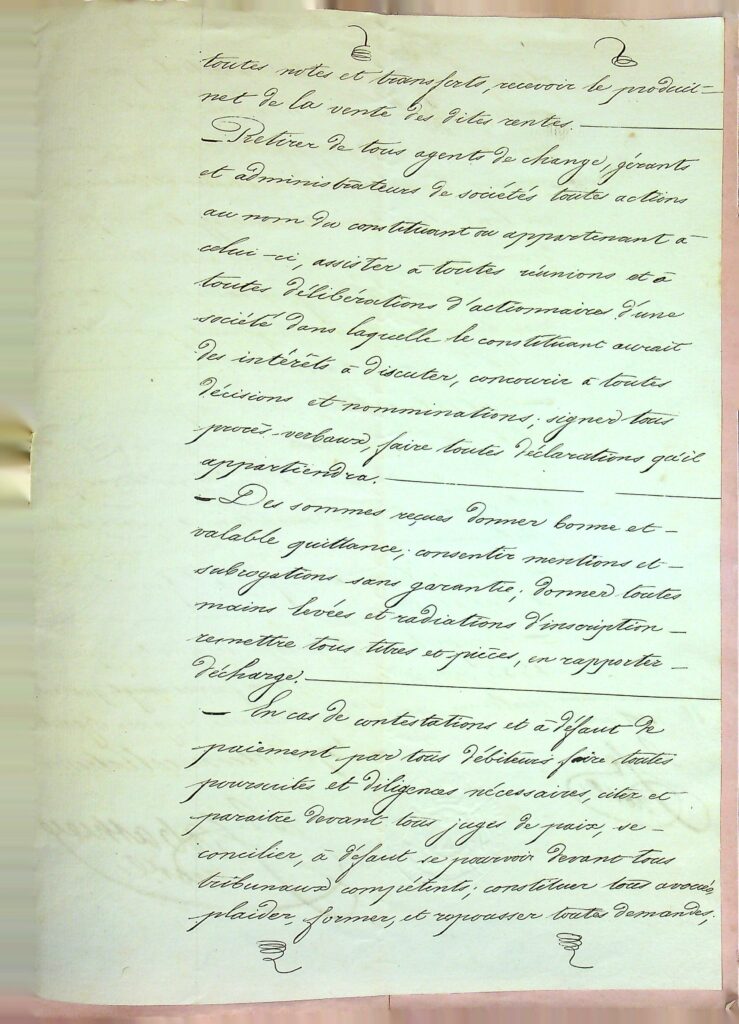 toutes notes et transferts, recevoir le produit =
net de la vente des dites rentes. —
— Retirer de tous agents de change, gérants
et administrateurs de sociétés toutes actions
au nom du constituant ou appartenant à
celui-ci, assister à toutes réunions et à
toutes délibérations d'actionnaires d'une
société dans laquelle le constituant aurait
des intérêts à discuter, concourir à toutes
décisions et nomminations; signer tous
procès-verbaux, faire toutes déclarations qu'il
appartiendra. —
— Des sommes reçues donner bonne et —
valable quittance; consentir mentions et —
subrogations sans garantie; donner toutes
mains levées et radiations d'inscription —
remettre tous titres et pièces, en rapporter —
décharge. —
— En cas de contestations et à défaut de
paiement par tous débiteurs faire toutes
poursuites et diligences nécessaires, citer et
paraitre devant tous juges de paix, se —
concilier, à défaut se pourvoir devant tous
tribunaux compétents; constituer tous avoués,
plaider, former, et repousser toutes demandes;